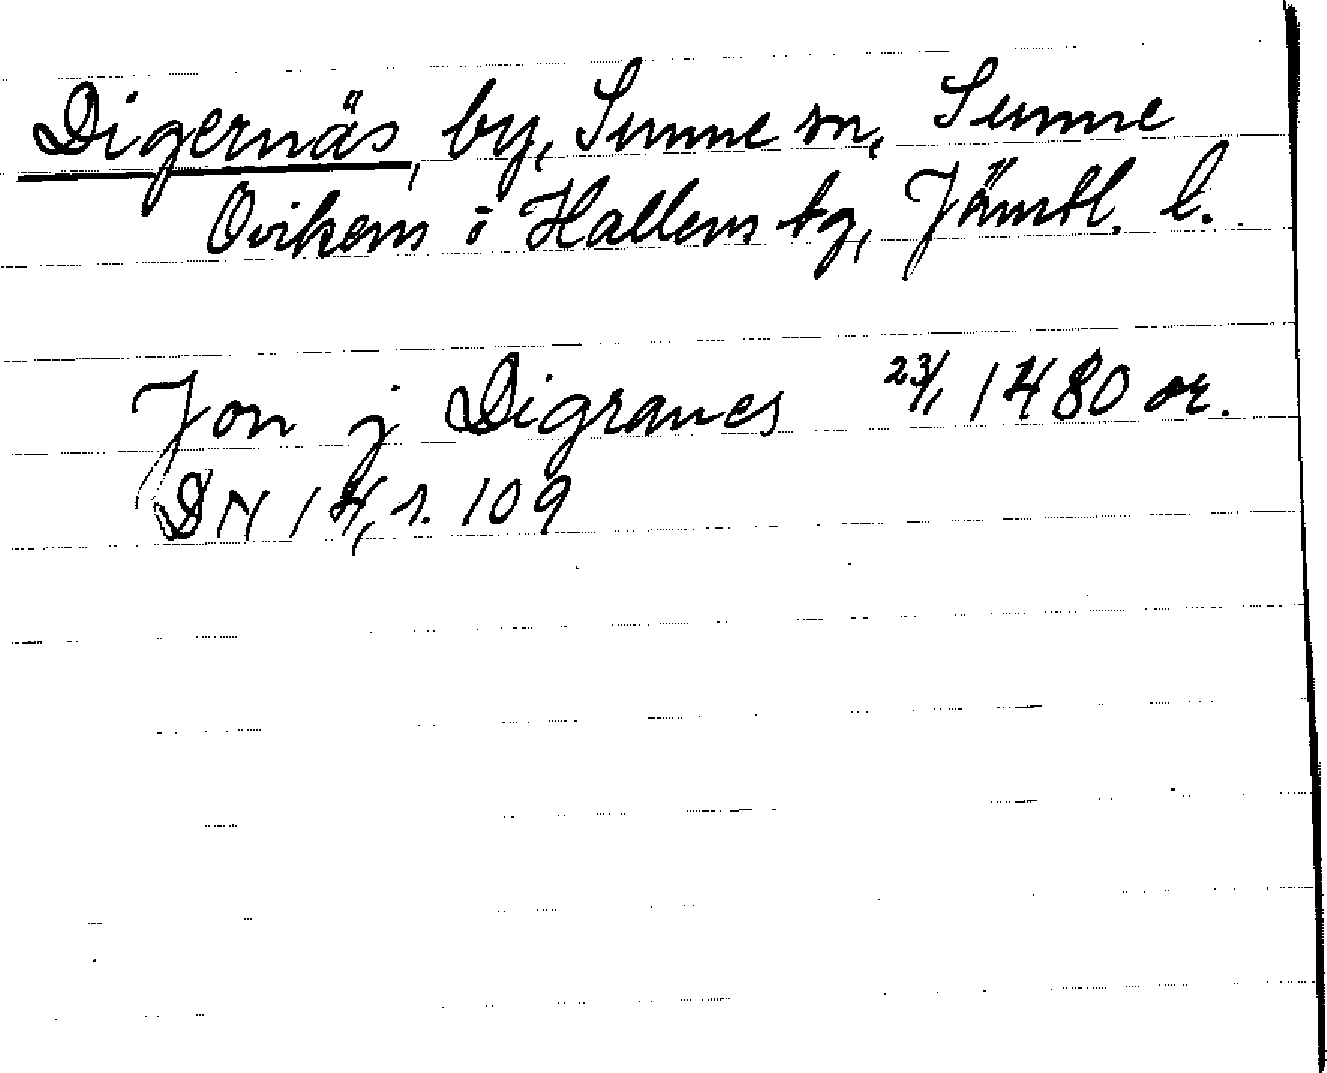 Digernäs, by, Sunne sn, Sunne
Ovikens i Hallens tg, Jämtl. l.
Jon j Digranes 23/1 1480 or.
DN 14, s. 109